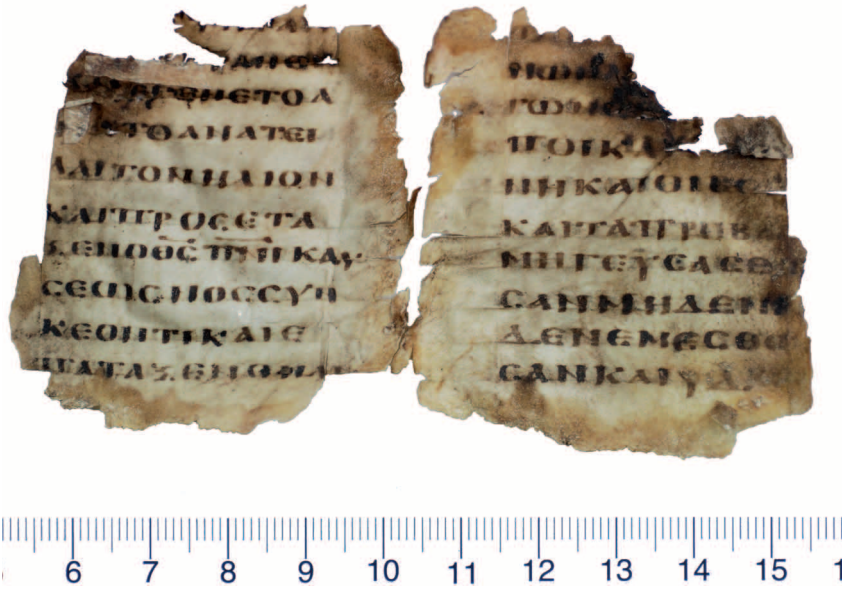 ϹΚΕΝΕΤΟΑ
ΤΟΑΝΑΤΕΙ
ΛΑΙΤΟΝΗΛΙΟΝ
ΚΑΙΠΡΟϹΕΤΑ
ΞΕΝΟΘϹΠΝΙΚΑΥ
ϹΕΩϹΝΟϹϹΥΝ
ΚΕΟΝΤΙΚΑΙΕ
ΠΑΤΑΞΕΝΟΗΛΙ
ΓΩΝΟ
ΠΟΙΚΑ
ΝΗΚΑΙΟΙΒΟ
ΚΑΙΤΑΠΡΟΒΑ
ΜΗΓΕΥϹΑϹΘ
ϹΑΝΜΗΔΕΝΜ
ΔΕΝΕΜΕϹΘΩ
ϹΑΝΚΑΙΥΔΩ
6 7 8 9 10 11 12 13 14 15